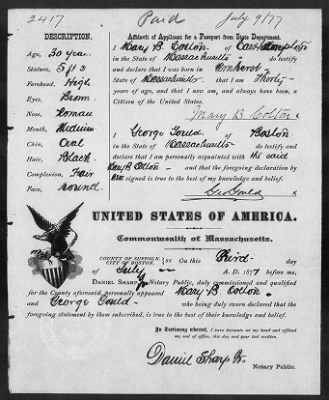 2417 Paid July 9/77
DESCRIPTION.
Age, 30 year
Stature, 5 ft 2
Forehead, High
Eyes, Brown
Nose, Roman
Mouth, Medium
Chin, Oval
Hair, Black
Complexion, Fair
Face, round
Affidavit of Applicant for a Passport from State Department.
I Mary B. Colton of East Hampton
in the State of Massachusetts do testify
and declare that I was born in Amherst
in the State of Massachusetts that I am Thirty
years of age, and I now am, and always have been, a
Citizen of the United States.
Mary B Colton
I George Gould of Boston
in the State of Massachusetts do testify and
declare that I am personally acquainted with the said
Mary B Colton and that the foregoing declaration by
her signed is true to the best of my knowledge and belief.
Geo Gould
UNITED STATES OF AMERICA.
Commonwealth of Massachusetts.
COUNTY OF SUFFOLK,
CITY OF BOSTON. ss On this Third day
of July A. D. 1877 before me,
DANIEL SHARP Jr Notary Public, duly commissioned and qualified
for the County aforesaid, personally appeared Mary B Colton
and George Gould who being duly sworn declared that the
foregoing statement by them subscribed, is true to the best of their knowledge and belief.
In Testimony whereof, I have hereunto set my hand and affixed
my seal of office, this day and year last written.
Daniel Sharp Jr.
Notary Public.